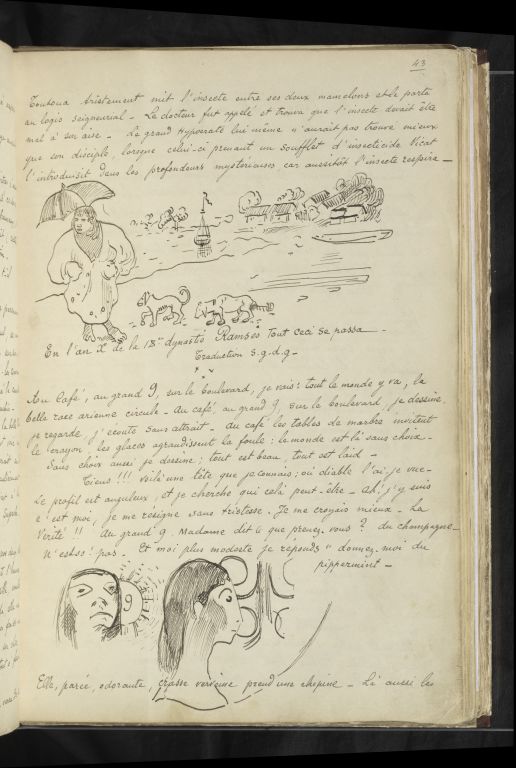 43
Toutoua tristement mit l'insecte entre ses deux mamelons et le porta
au logis seigneurial - Le docteur fut appelé et trouva que l'insecte devait être
mal à son aise - Le grand Hypocrate lui même n'aurait pas trouvé mieux
que son disciple, lorsque celui-ci prenant un soufflet d'insecticide Vicat
l'introduisit dans les profondeurs mystérieuses car aussitôt l'insecte respira -
En l'an X de la 18me dynastie Ramsès Tout ceci se passa -
Traduction s.g.d.g -
Au Café, au grand 9, sur le boulevard, je vais: tout le monde y va, la
belle race arienne circule - Au café, au grand 9, sur le boulevard, je dessine,
je regarde, j'écoute sans attrait - Au café les tables de marbre invitent
le crayon, les glaces agrandissent la foule: le monde est là sans choix -
Sans choix aussi je dessine; tout est beau, tout est laid -
Tiens!!! voilà une tête que je connais; où diable l'ai-je vue -
Le profil est anguleux, et je cherche qui celà peut-être - Ah! j'y suis
c'est moi, je me résigne sans tristesse. Je me croyais mieux - La
Vérité!! Au grand 9, Madame dit que prenez vous? du champagne -
N'est ce! pas - Et moi plus modeste je réponds "donnez-moi du
pippermint -
9
Elle, parée, odorante, crasse verveine prend une chopine - Là aussi les